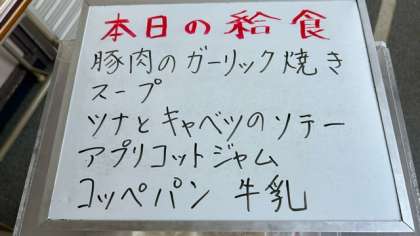 本日の給食
豚肉のガーリック焼き
スープ
ツナとキャベツのソテー
アプリコットジャム
コッペパン 牛乳